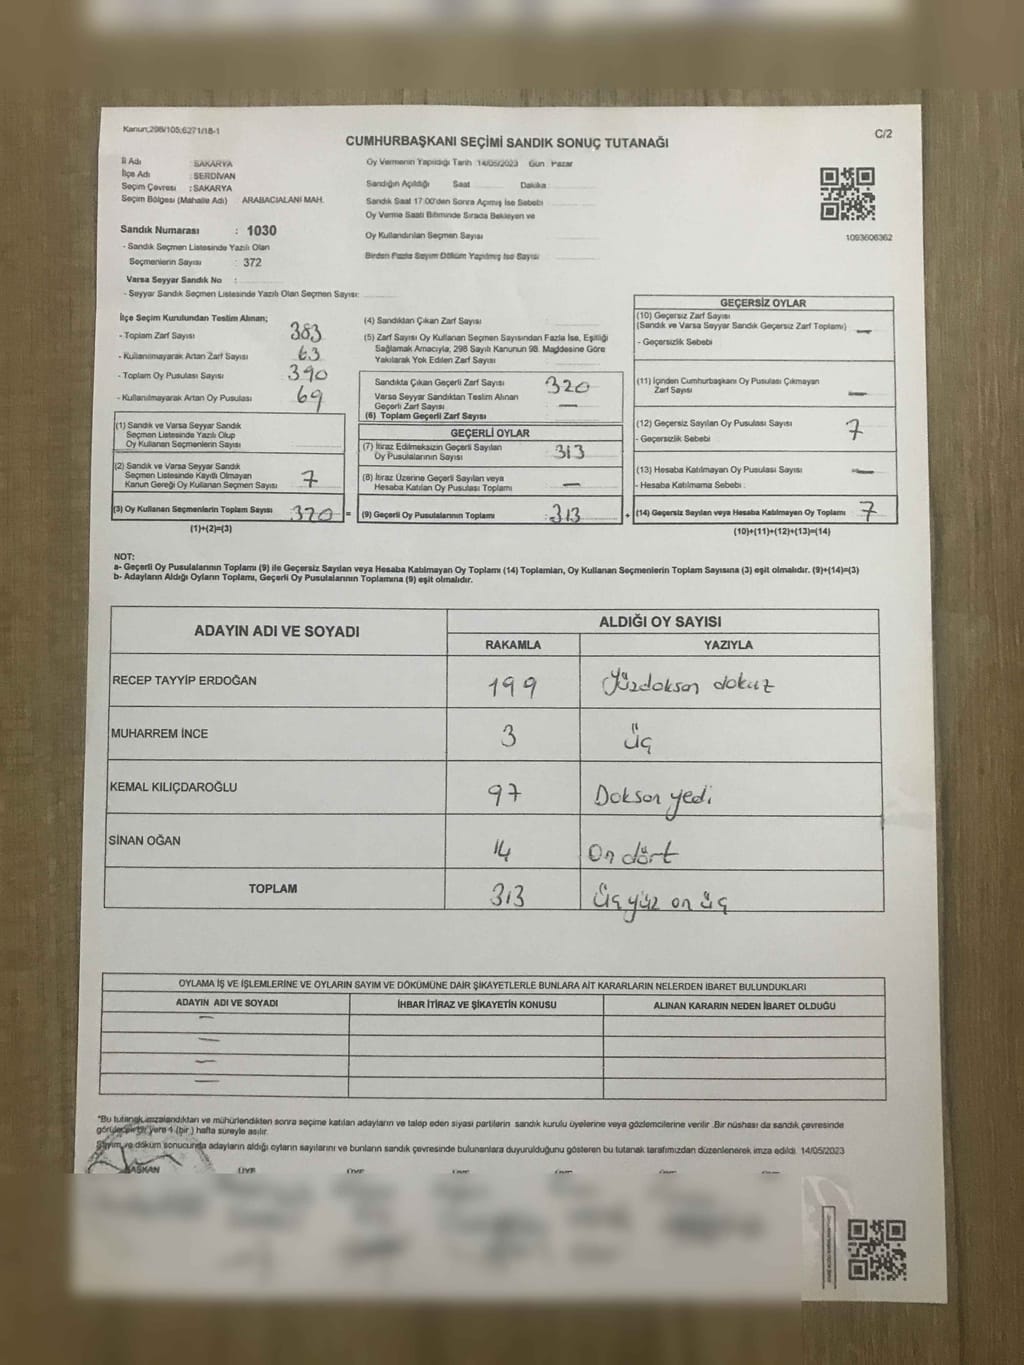 Kanun;298/105;6271/18-1
C/2
CUMHURBAŞKANI SEÇİMİ SANDIK SONUÇ TUTANAĞI
İl Adı : SAKARYA
İlçe Adı : SERDİVAN
Seçim Çevresi : SAKARYA
Seçim Bölgesi (Mahalle Adı) ARABACIALANI MAH.
Sandık Numarası : 1030
- Sandık Seçmen Listesinde Yazılı Olan
Seçmenlerin Sayısı : 372
Varsa Seyyar Sandık No :
- Seyyar Sandık Seçmen Listesinde Yazılı Olan Seçmen Sayısı:
Oy Vermenin Yapıldığı Tarih 14/05/2023 Gün : Pazar
Sandığın Açıldığı Saat Dakika
Sandık Saat 17.00'den Sonra Açımış İse Sebebi
Oy Verme Saati Bitiminde Sırada Bekleyen ve
Oy Kullandırılan Seçmen Sayısı
Birden Fazla Sayım Döküm Yapılmış İse Sayısı
1093606362
İlçe Seçim Kurulundan Teslim Alınan;
- Toplam Zarf Sayısı 383
- Kullanılmayarak Artan Zarf Sayısı 63
- Toplam Oy Pusulası Sayısı 390
- Kullanılmayarak Artan Oy Pusulası 69
(1) Sandık ve Varsa Seyyar Sandık
Seçmen Listesinde Yazılı Olup
Oy Kullanan Seçmenlerin Sayısı
(2) Sandık ve Varsa Seyyar Sandık
Seçmen Listesinde Kayıtlı Olmayan
Kanun Gereği Oy Kullanan Seçmen Sayısı 7
(3) Oy Kullanan Seçmenlerin Toplam Sayısı 320 =
(1)+(2)=(3)
(4) Sandıktan Çıkan Zarf Sayısı
(5) Zarf Sayısı Oy Kullanan Seçmen Sayısından Fazla İse, Eşitliği
Sağlamak Amacıyla, 298 Sayılı Kanunun 98. Maddesine Göre
Yakılarak Yok Edilen Zarf Sayısı
Sandıkta Çıkan Geçerli Zarf Sayısı 320
Varsa Seyyar Sandıktan Teslim Alınan
Geçerli Zarf Sayısı —
(6) Toplam Geçerli Zarf Sayısı
GEÇERLİ OYLAR
(7) İtiraz Edilmeksizin Geçerli Sayılan
Oy Pusulalarının Sayısı 313
(8) İtiraz Üzerine Geçerli Sayılan veya
Hesaba Katılan Oy Pusulası Toplamı —
(9) Geçerli Oy Pusulalarının Toplamı 313 +
GEÇERSİZ OYLAR
(10) Geçersiz Zarf Sayısı
(Sandık ve Varsa Seyyar Sandık Geçersiz Zarf Toplamı) —
- Geçersizlik Sebebi
(11) İçinden Cumhurbaşkanı Oy Pusulası Çıkmayan
Zarf Sayısı —
(12) Geçersiz Sayılan Oy Pusulası Sayısı 7
- Geçersizlik Sebebi
(13) Hesaba Katılmayan Oy Pusulası Sayısı —
- Hesaba Katılmama Sebebi
(14) Geçersiz Sayılan veya Hesaba Katılmayan Oy Toplamı 7
(10)+(11)+(12)+(13)=(14)
NOT:
a- Geçerli Oy Pusulalarının Toplamı (9) ile Geçersiz Sayılan veya Hesaba Katılmayan Oy Toplamı (14) Toplamları, Oy Kullanan Seçmenlerin Toplam Sayısına (3) eşit olmalıdır. (9)+(14)=(3)
b- Adayların Aldığı Oyların Toplamı, Geçerli Oy Pusulalarının Toplamına (9) eşit olmalıdır.
ADAYIN ADI VE SOYADI ALDIĞI OY SAYISI
RAKAMLA YAZIYLA
RECEP TAYYİP ERDOĞAN 199 Yüzdoksan dokuz
MUHARREM İNCE 3 üç
KEMAL KILIÇDAROĞLU 97 Doksan yedi
SİNAN OĞAN 14 On dört
TOPLAM 313 üç yüz on üç
OYLAMA İŞ VE İŞLEMLERİNE VE OYLARIN SAYIM VE DÖKÜMÜNE DAİR ŞİKAYETLERLE BUNLARA AİT KARARLARIN NELERDEN İBARET BULUNDUKLARI
ADAYIN ADI VE SOYADI İHBAR İTİRAZ VE ŞİKAYETİN KONUSU ALINAN KARARIN NEDEN İBARET OLDUĞU
—
—
—
—
*Bu tutanak imzalandıktan ve mühürlendikten sonra seçime katılan adayların ve talep eden siyasi partilerin sandık kurulu üyelerine veya gözlemcilerine verilir .Bir nüshası da sandık çevresinde
görülecek bir yere 1 (bir ) hafta süreyle asılır.
Sayım ve döküm sonucunda adayların aldığı oyların sayılarını ve bunların sandık çevresinde bulunanlara duyurulduğunu gösteren bu tutanak tarafımızdan düzenlenerek imza edildi. 14/05/2023
BAŞKAN